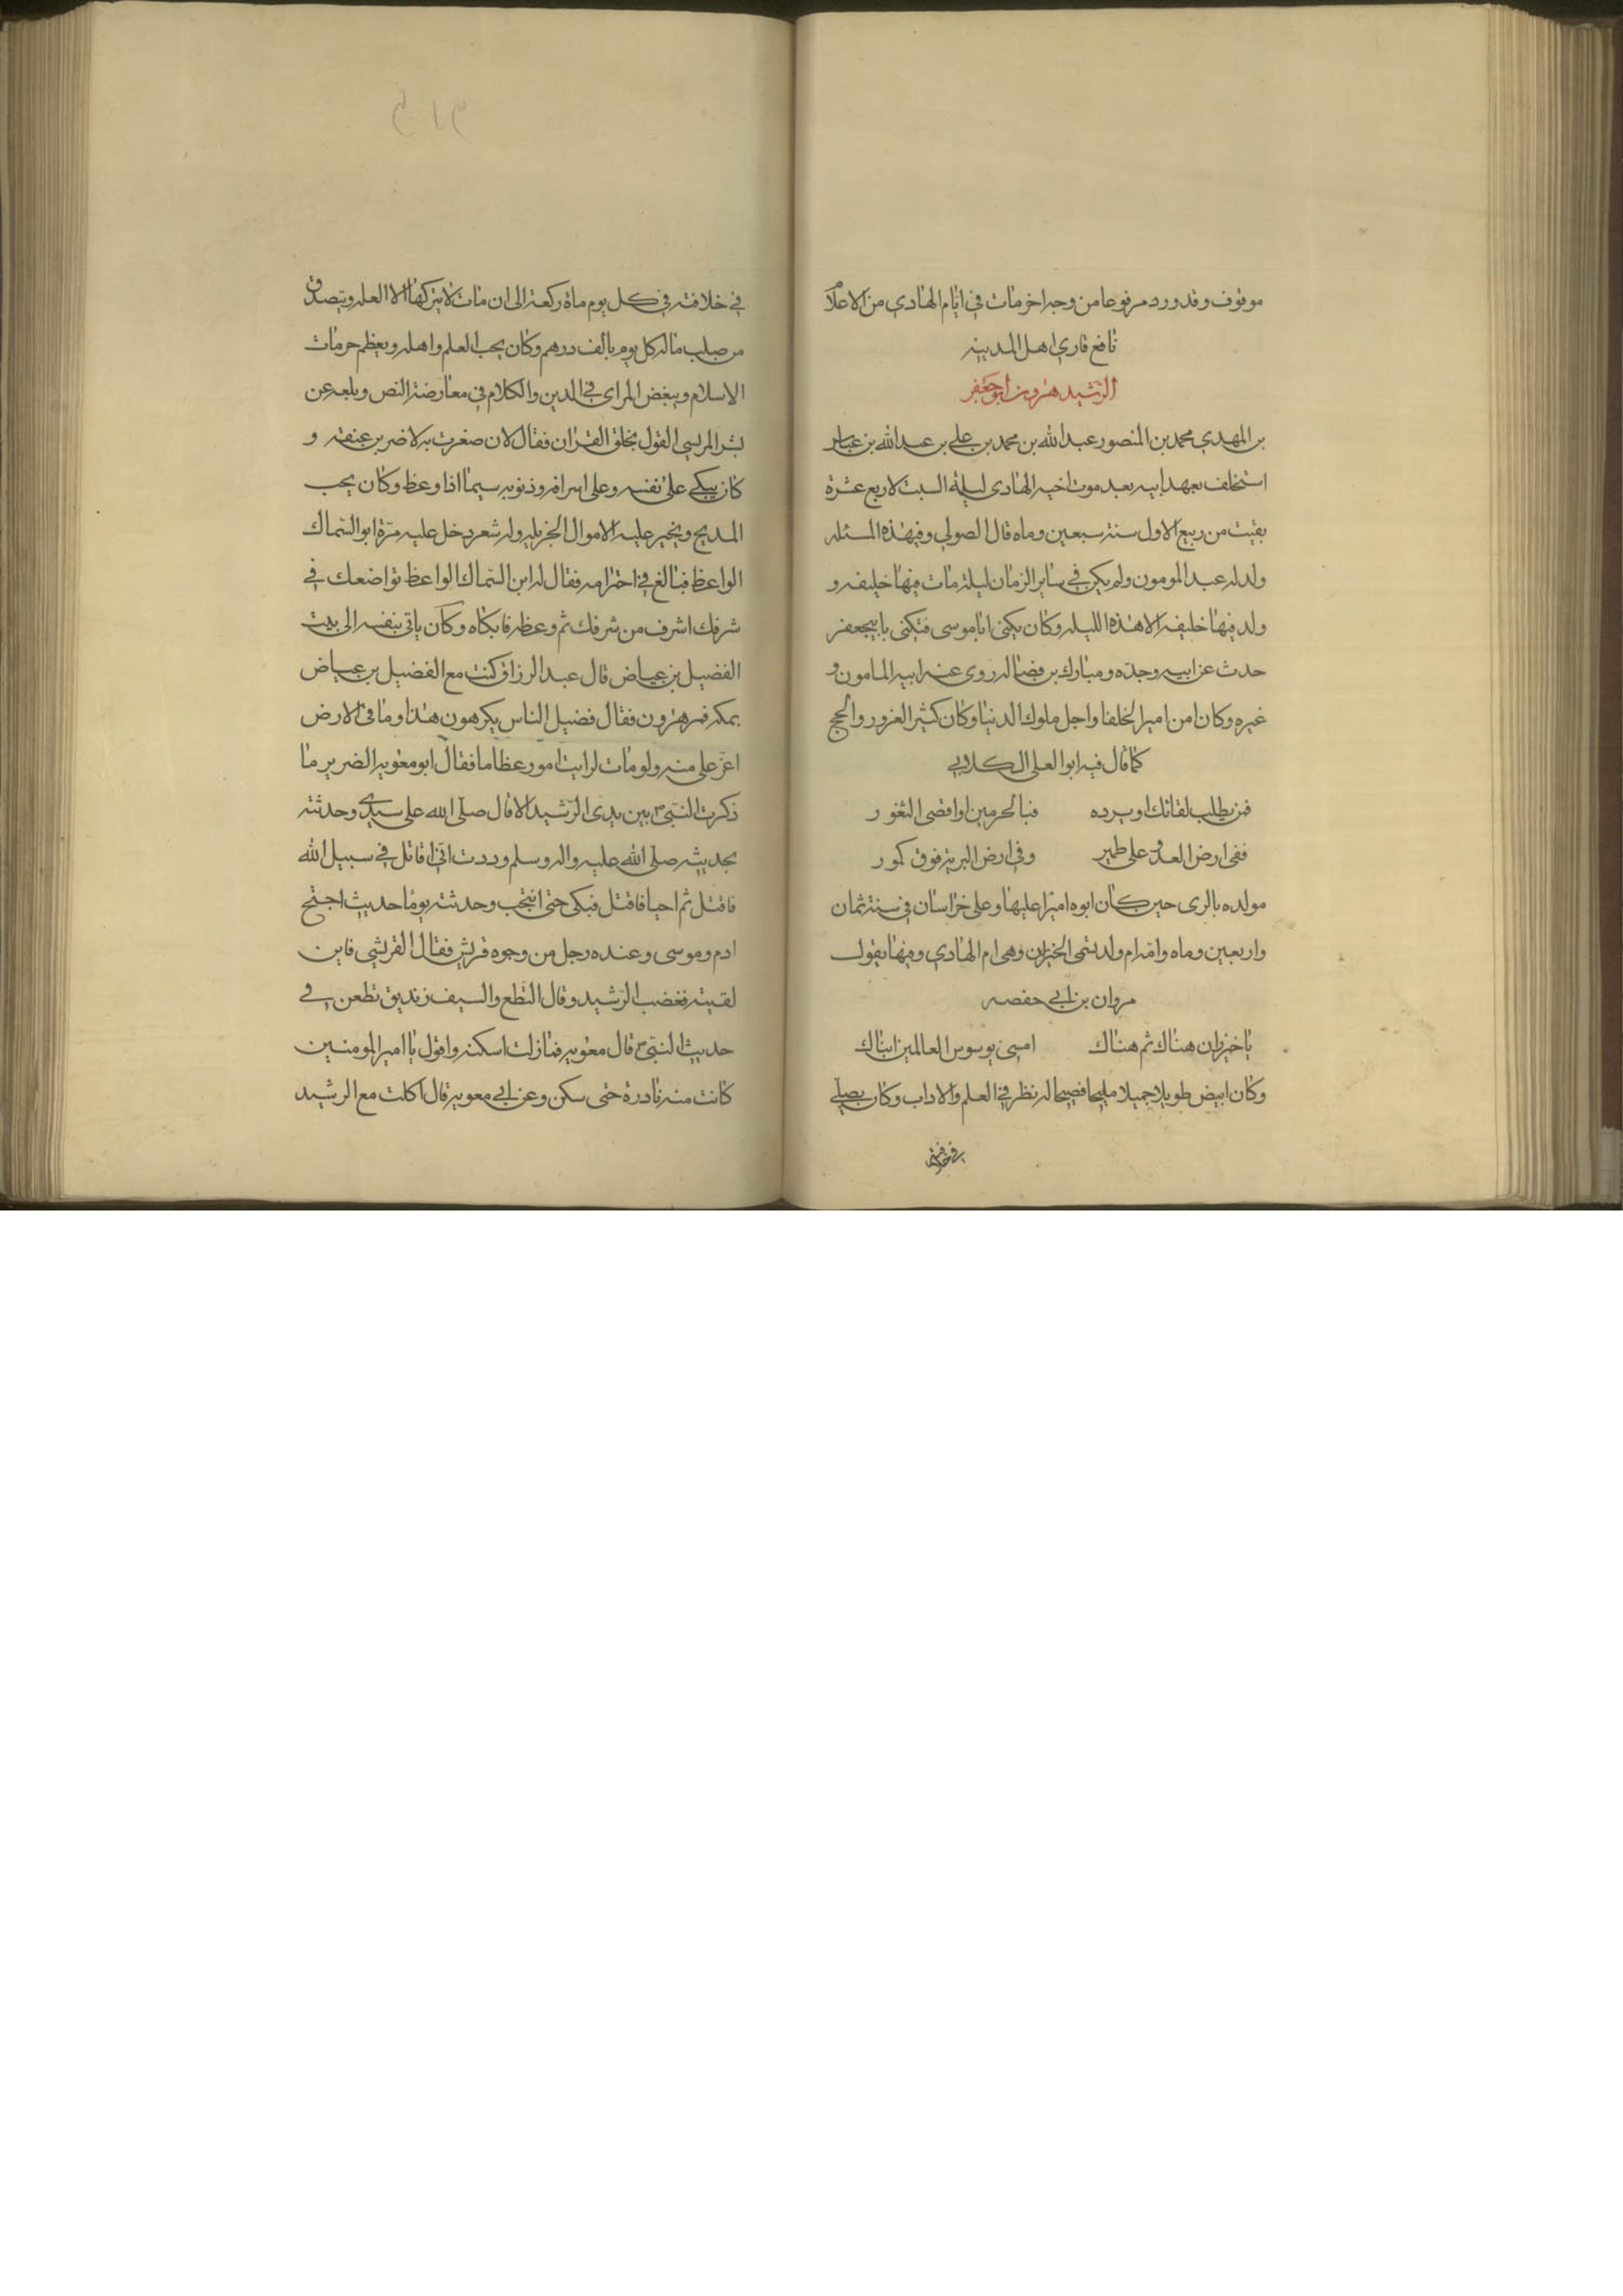 موقوف وقد ورد مرفوعا من وجه اخر مات في ايام الهادي من الاعلام
نافع قاري اهل المدينه
الرشيد هرون ابو جعفر
بن المهدي محمد بن المنصور عبد الله بن محمد بن علي بن عبد الله بن عباس
استخلف بعهد ابيه بعد موت اخيه الهادى ليلة السبت لاربع عشرة
بقيت من ربيع الاول سنة سبعين وماه قال الصولي وفي هذه المسئله
ولد له عبد المومون ولم يكن في ساير الزمان ليلة مات فيها خليفه و
ولد فيها خليفه الا هذه الليله وكان يكنى ابا موسى فتكنى بابي جعفر
حدث عن ابيه وجده ومبارك بن فضاله روى عنه ابيه المامون و
غيره وكان من امير الخلفا واجل ملوك الدنيا وكان كثير الغزو والحج
كما قال فيه ابو العلى الكلابي
فمن يطلب لقائك او يرده فبالحرمين او اقصى الثغور
ففى ارض العدو على طمر وفي ارض البرية فوق كور
مولده بالرى حين كان ابوه اميرا عليها وعلى خراسان في سنة ثمان
واربعين وماه وامه ام ولد تسمى الخيزران وهى ام الهادي وفيها يقول
مروان بن ابي حفصه
يا خيزران هناك ثم هناك امسى يوسوس العالمين ابناك
وكان ابيض طويلا جميلا مليحا فصيحا له نظر في العلم والاداب وكان يصلي
في خلافته
في خلافته في كل يوم ماة ركعة الى ان مات لا يتركها الا العله ويتصدق
من صلب ماله كل يوم بالف درهم وكان يحب العلم واهله ويعظم حرمات
الاسلام ويبغض المراى في الدين والكلام في معارضة النص وبلغه عن
بشر المريسي القول بخلق القران فقال لان صغرت به لاضربن عنقه و
كان يبكي على نفسه وعلى اسرافه وذنوبه سيما اذا وعظ وكان يحب
المديح ويجيز عليه الاموال الجزيله وله شعر دخل عليه مرة ابو السماك
الواعظ فبالغ في احترامه فقال له ابن السماك الواعظ تواضعك في
شرفك اشرف من شرفك ثم وعظه فابكاه وكان ياتي بنفسه الى بيت
الفضيل بن عياض قال عبد الرزاق كنت مع الفضيل بن عياض
بمكه فمر هرون فقال فضيل الناس يكرهون هذا وما في الارض
اعز على منه ولو مات لرايت امور عظاما فقال ابو معويه الضرير ما
ذكرت النبي بين يدى الرشيد الا قال صلى الله على سيدي وحدثته
بحديثه صلى الله عليه واله وسلم وددت اني اقاتل في سبيل الله
فاقتل ثم احيا فاقتل فبكى حتى انتحب وحدثته يوما حديث احتج
ادم وموسى وعنده رجل من وجوه قريش فقال القرشي فاين
لقيته فغضب الرشيد وقال النطع والسيف زنديق تطعن في
حديث النبي قال معويه فما زلت اسكته واقول يا امير المومنين
كانت منه نادرة حتى سكن وعن ابي معويه قال اكلت مع الرشيد